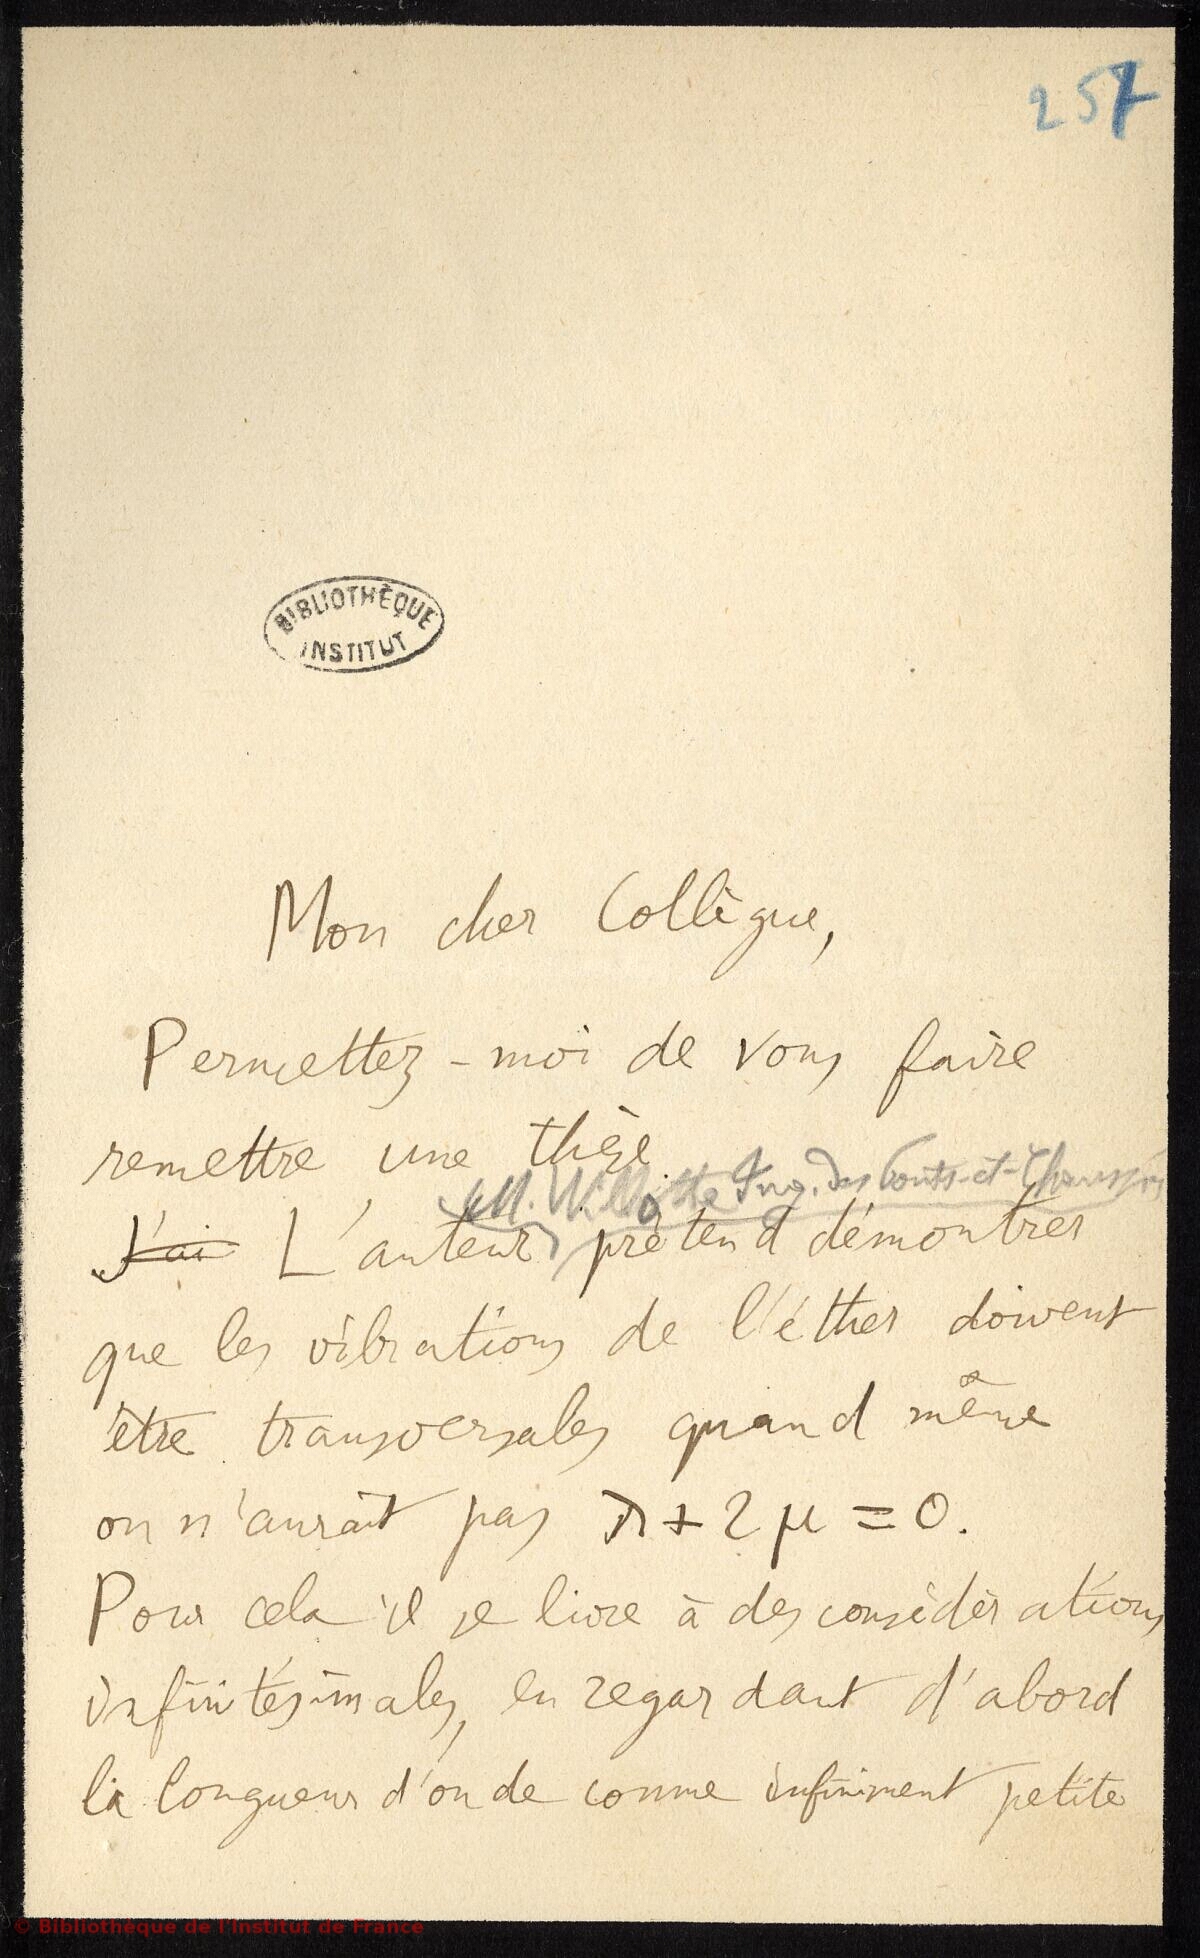 257
BIBLIOTHÈQUE
INSTITUT
Mon cher Collègue,
Permettez-moi de vous faire
remettre une thèse.
(M. Willotte Ing. des Ponts-et-Chaussées)
J'ai L'auteur prétend démontrer
que les vibrations de l'éther doivent
être transversales quand même
on n'aurait pas λ + 2μ = 0.
Pour cela il se livre à des considérations
infinitésimales, en regardant d'abord
la longueur d'onde comme infiniment petite
© Bibliothèque de l'Institut de France